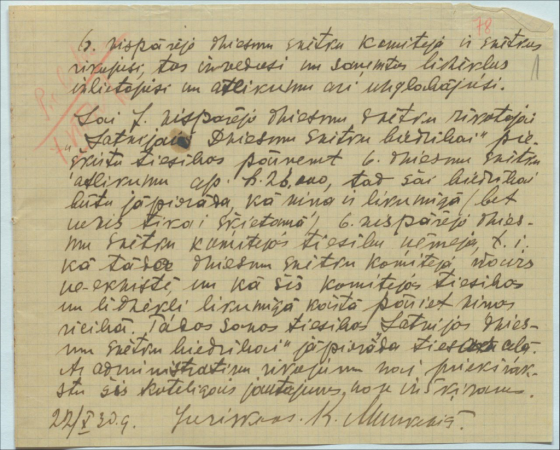 78
6. vispārējo dziesmu svētku komiteja ir svētkus
rīkojusi, tos novadusi un saņemtos līdzekļus
izlietojusi un atlikumu arī uzglabājusi.
Lai 7. vispārējo dziesmu svētku rīkotājai
„Latvijas Dziesmu svētku biedrībai" pie-
šķirtu tiesības pārņemt 6. dziesmu svētku
atlikumu ap. 26.000, tad šai biedrībai
būtu jāpierāda, ka viņa ir likumīgā (bet
nevis tikai šķietamā) 6. vispārējo dzies-
mu svētku komitejas tiesību ņēmēja, t. i.
kā tādas dziesmu svētku komitejas vairs
ne-eksistē un ka šīs komitejas tiesības
un līdzekļi likumīgā kārtā pāriet viņas
rīcībā. Tādas savas tiesības „Latvijas dzies-
mu svētku biedrībai" jāpierāda tiesas ceļā.
Ar administratīvu rīkojumu nav priekšrak-
stu šīs kategorijas jautājumus izšķirams.
22/X 30.g. Juriskons. K.